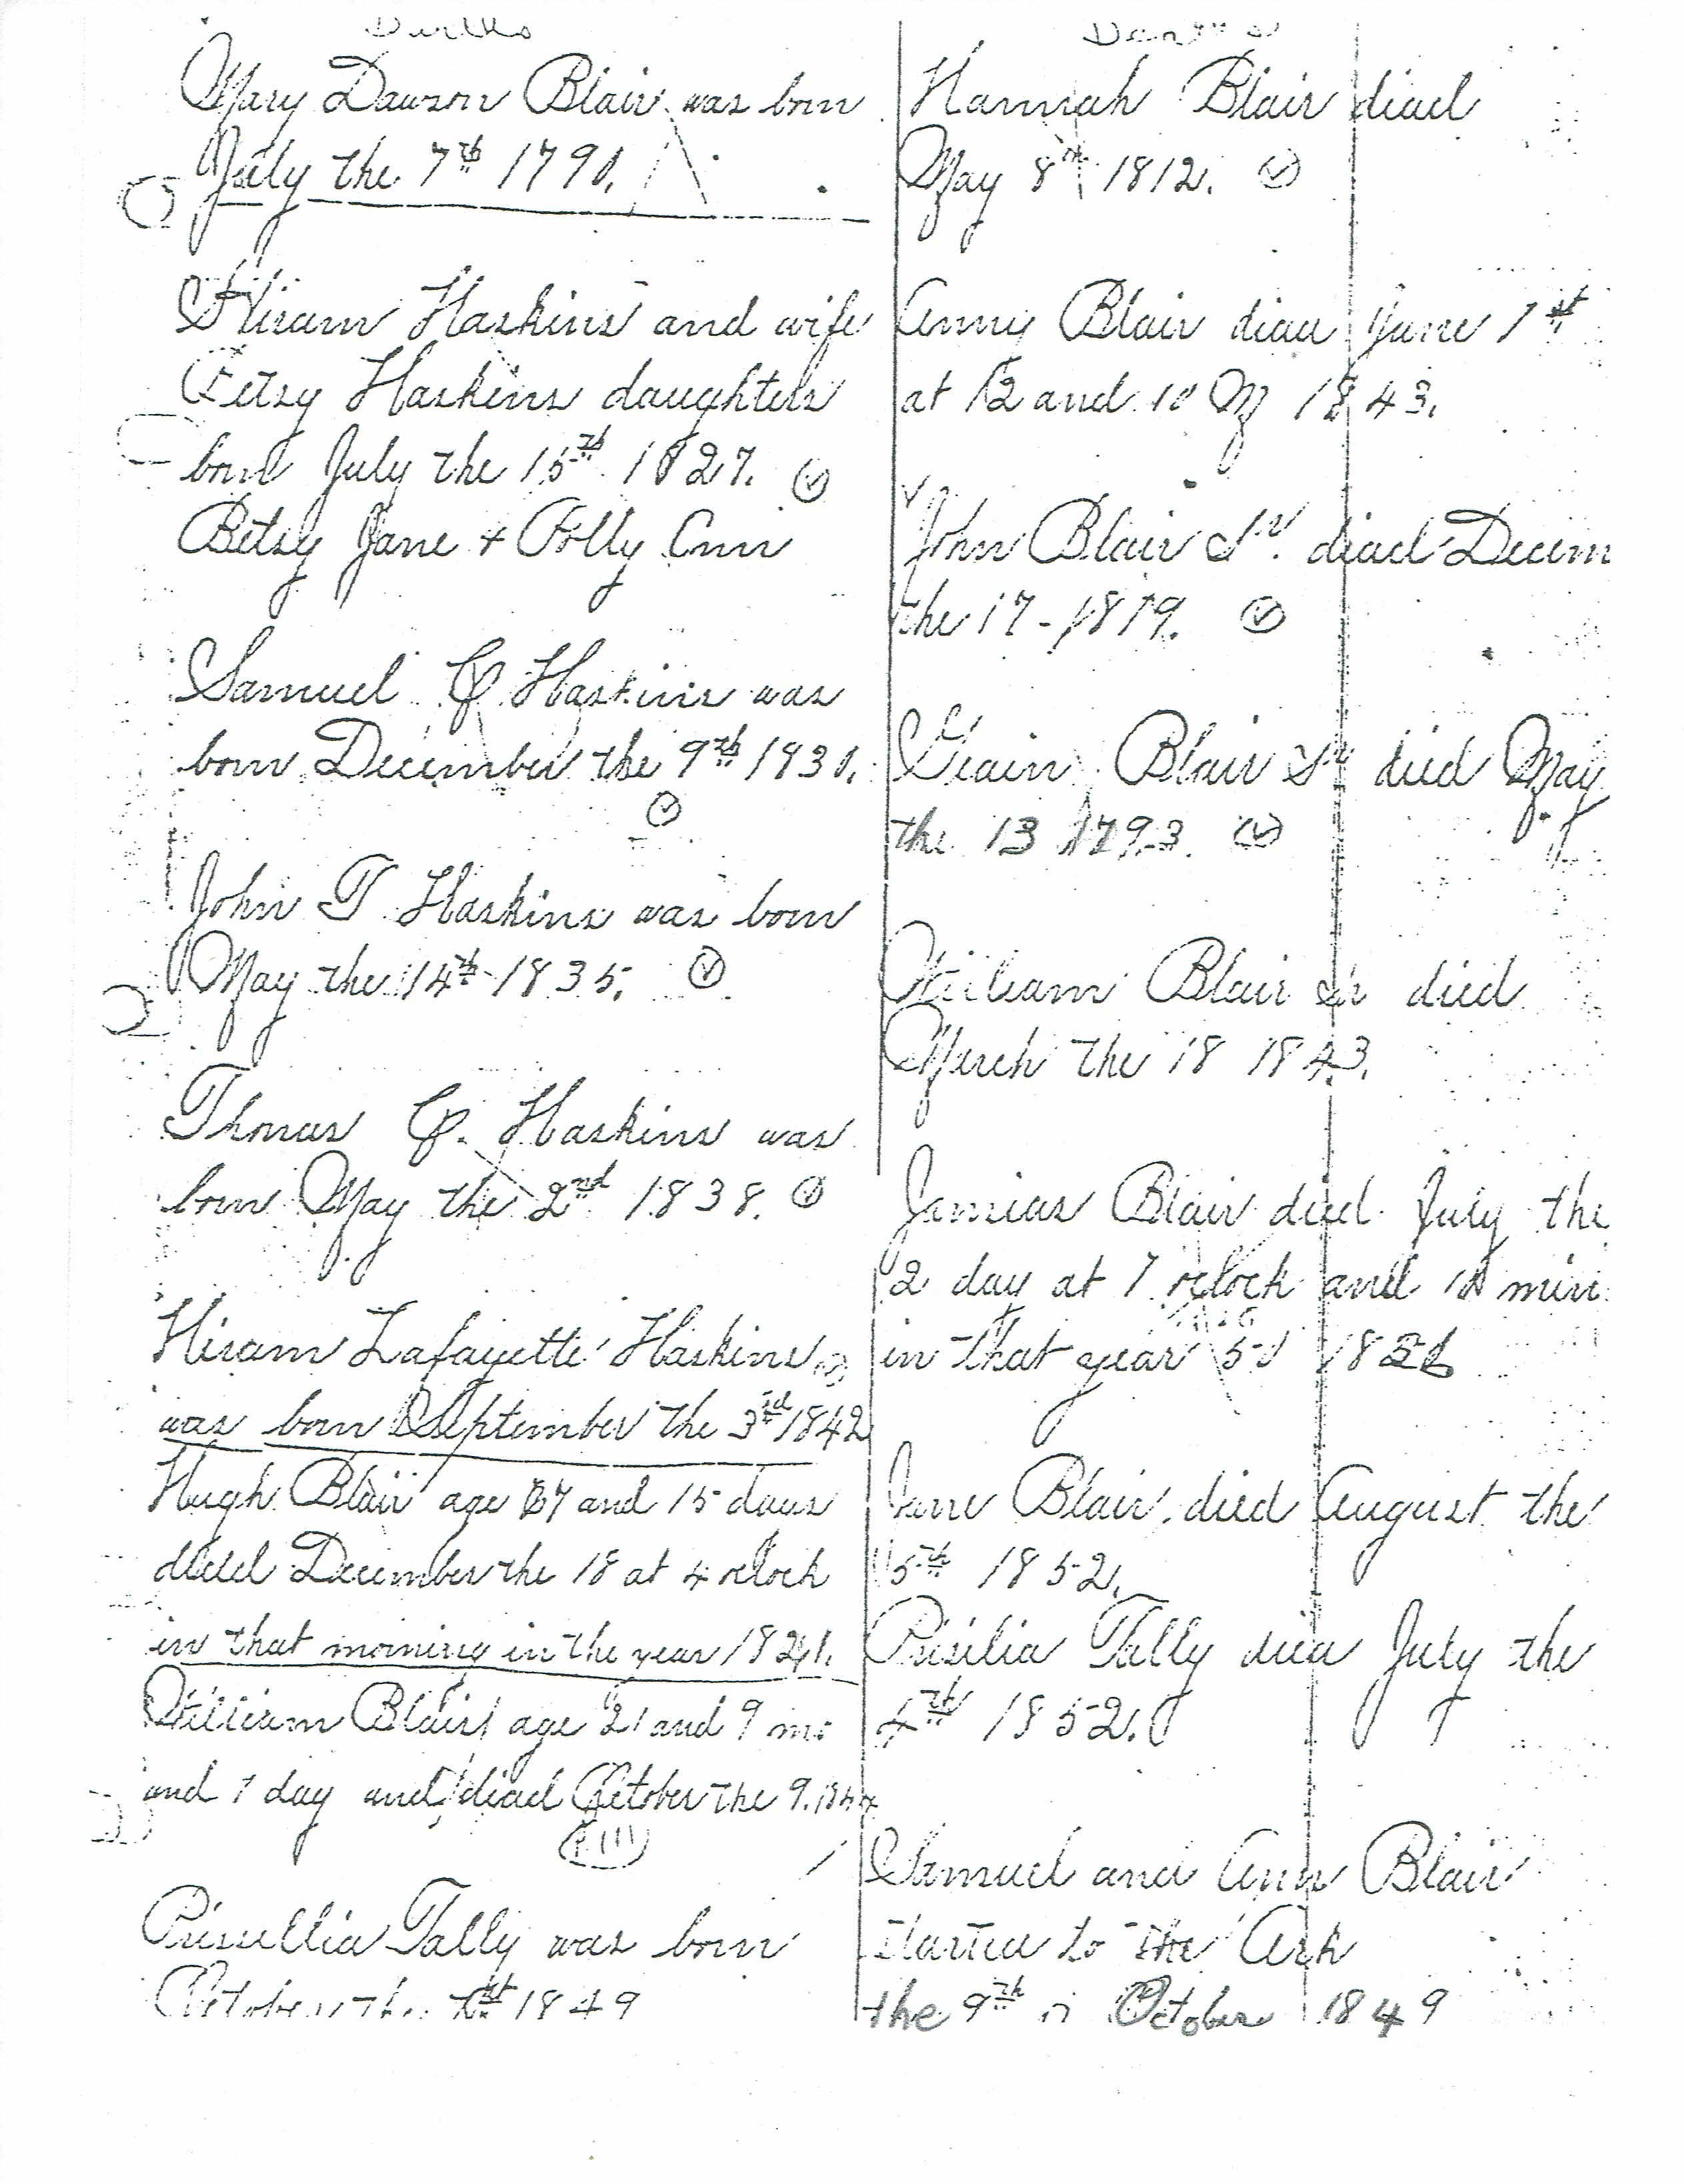 Births
Mary Dawson Blair was born
July the 7th 1791.
Hiram Haskins and wife
Betsy Haskins daughters
born July the 15th 1827.
Betsy Jane + Polly Ann
Samuel C. Haskins was
born December the 9th 1831.
John T Haskins was born
May the 14th 1835.
Thomas C. Haskins was
born May the 2nd 1838.
Hiram Lafayette Haskins
was born September the 3rd 1842
Hugh Blair age 67 and 15 days
died December the 18 at 4 oclock
in that morning in the year 1841.
William Blair age 21 and 9 mo
and 1 day and diad October the 9. 1844
Prissillia Tally was born
October the 1st 1849
Deaths
Hannah Blair diad
May 8th 1812.
Anny Blair diad June 1st
at 12 and 10 M 1843.
John Blair Sr. diad Decem
the 17 - 1819.
Blair Sr died May
the 13 1793.
William Blair Sr died
March the 18 1843.
Jamias Blair died July the
2 day at 7 oclock and 10 min
in that year 51 1851
Jane Blair died August the
5th 1852.
Prisilia Tally died July the
4th 1852.
Samuel and Ann Blair
started to the Ark
the 9th October 1849